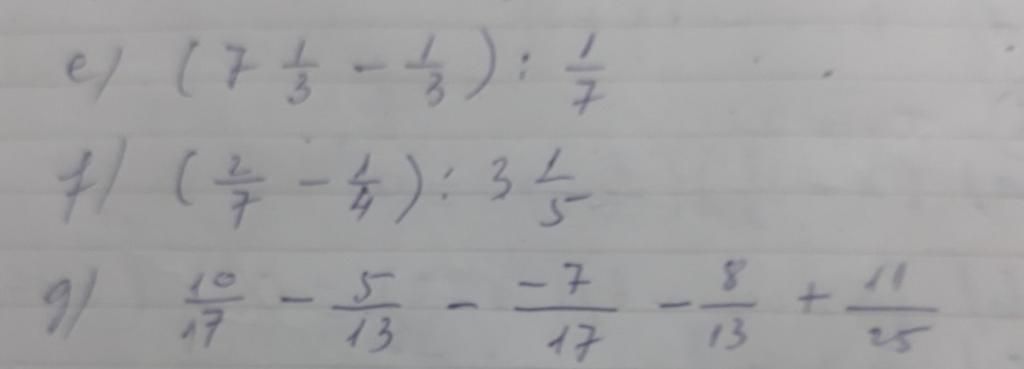 e) (7 1/3 - 1/3) : 1/7
f) (2/7 - 1/4) : 3 1/5
g) 10/17 - 5/13 - -7/17 - 8/13 + 11/25